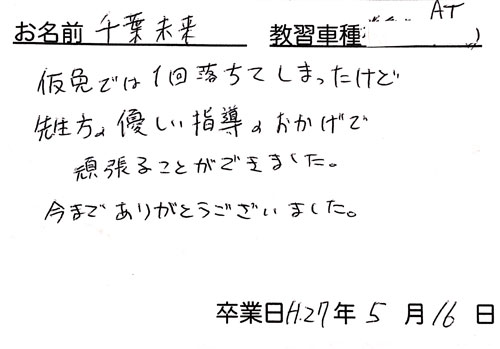 お名前 千葉未来 教習車種 AT )
仮免では1回落ちてしまったけど
先生方の優しい指導のおかげで
頑張ることができました。
今までありがとうございました。
卒業日H.27年 5 月 16 日